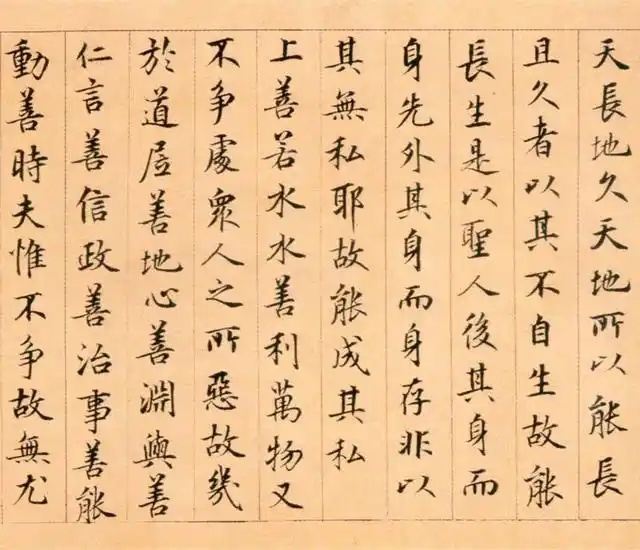 天長地久天地所以能長
且久者以其不自生故能
長生是以聖人後其身而
身先外其身而身存非以
其無私耶故能成其私
上善若水水善利萬物又
不争處衆人之所惡故幾
於道居善地心善淵與善
仁言善信政善治事善能
動善時夫惟不争故無尤